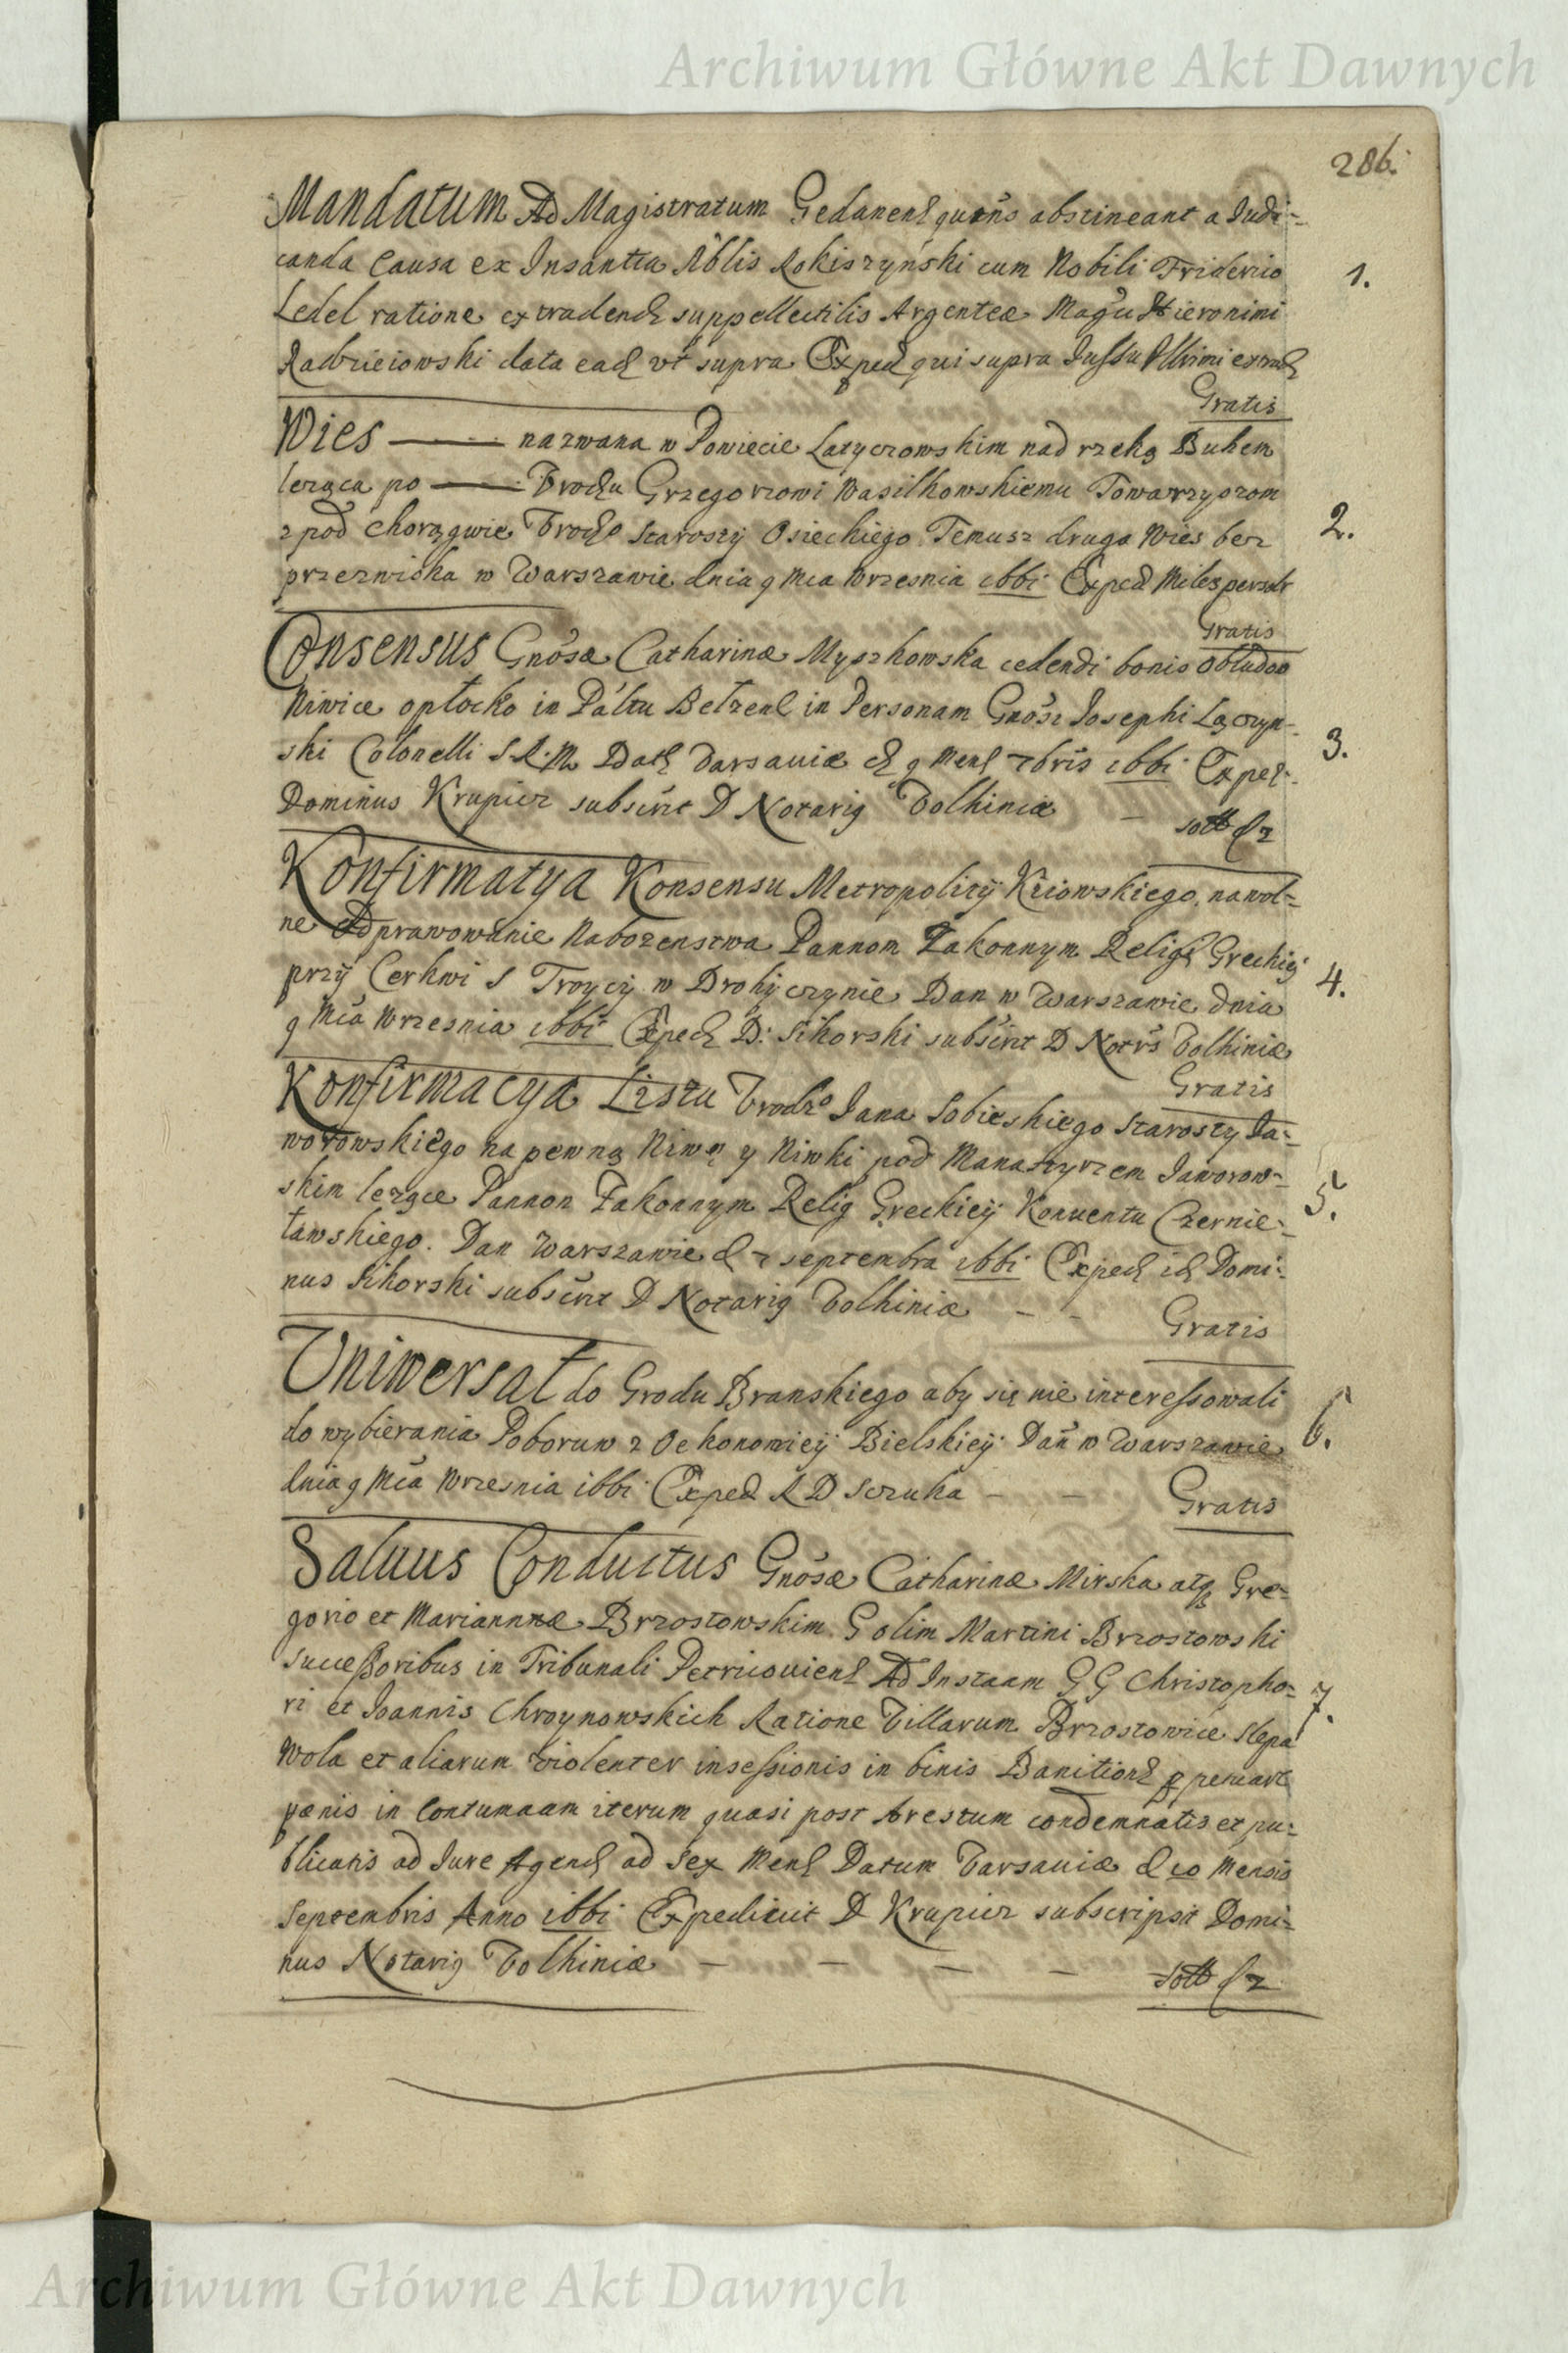 Archiwum Główne Akt Dawnych
286.
Mandatum Ad Magistratum Gedanens quatns abstineant a Judi-
canda Causa ex Instantia Nblis Rokiszyński cum Nobili Friderico
Ledel ratione extradend suppellectilis Argenteæ Magci Hieronimi
Radzieiowski data ead vt supra Exped qui supra Jussu Illtrimi
1.
Gratis
Wies ——— nazwana w Powiecie Latyczowskim nad rzeką Buhem
leząca po ——— Vrodzu Grzegorzowi Wasilkowskiemu Towarzyszom
z pod Chorągwie Vrodzo Starosty Osieckiego Temusz druga Wies bez
przezwiska w Warszawie dnia 9 Mca Wrzesnia 1661 Exped Miles
2.
Gratis
Consensus Gnosæ Catharinæ Myszkowska cedendi bonis
Niwice opłocko in Páltu Bełzens in Personam Gnosi Josephi Lączyn-
ski Colonelli S.R.M. Dat Varsauiæ d 9 Mens 7bris 1661 Exped-
Dominus Krupier subscrit D Notarig Volhiniæ —
3.
Konfirmatya Konsensu Metropolity Kiiowskiego, na wol-
ne Odprawowanie Nabozenstwa Pannom Zakonnym Relig Greckiey
przy Cerkwi S Troycy w Drohyczynie Dan w Warszawie dnia
9 Mca Wrzesnia 1661 Exped D: Sikorski subscrit D Notrs Volhiniæ
4.
Gratis
Konfirmacya Listu Vrodzo Jana Sobieskiego Starosty Ja-
worowskiego na pewną Niwę y Niwki pod Manastyrzem Jaworow-
skim lezące Pannon Zakonnym Relig Greckiey Konuentu Czernie-
ławskiego. Dan Warszawie d 7 septembra 1661 Exped id Domi-
nus Sikorski subscrit D Notarig Volhiniæ — -
5.
Gratis
Uniwersał do Grodu Branskiego aby się nie interessowali
do wybierania Poboruw z Oekonomiey Bielskiey Dan w Warszawie
dnia 9 Mca Wrzesnia 1661 Exped R D Sczuka — —
6.
Gratis
Saluus Conductus Gnosæ Catharinæ Mirska atq Gre-
gorio et Mariannæ Brzostowskim G olim Martini Brzostowski
successoribus in Tribunali Petricouiens Ad Instaam G G Christopho-
ri et Joannis Chroynowskich Ratione Villarum Brzostowice Slepa
Wola et aliarum violenter insessionis in binis Banitions
pænis in Contumaam iterum quasi post Arestum condemnatis et pu-
blicatis ad Jure Agend ad sex Mens Datum Varsauiæ d 10 Mensis
Septembris Anno 1661 Expedicuit D Krupier subscripsit Domi-
nus Notarig Volhiniæ — — — —
7.
Archiwum Główne Akt Dawnych